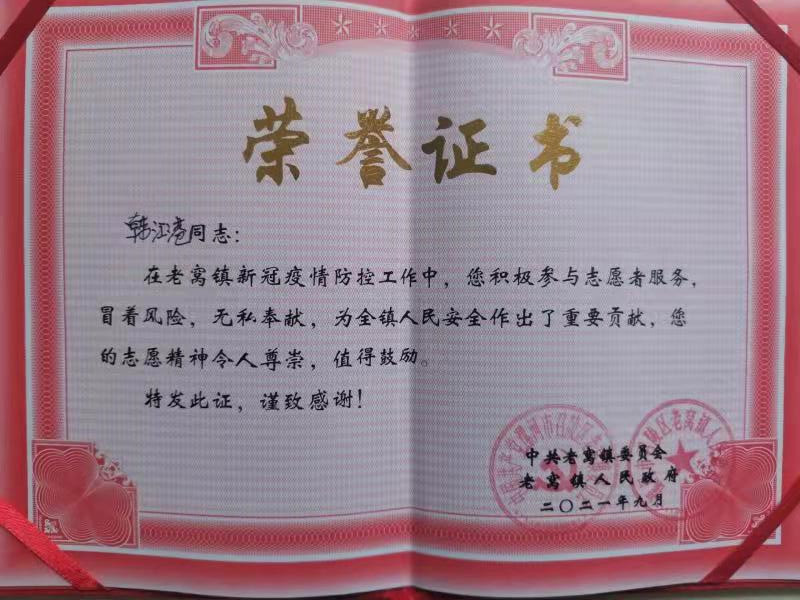 荣誉证书
韩江亮同志：
在老窝镇新冠疫情防控工作中，您积极参与志愿者服务，
冒着风险，无私奉献，为全镇人民安全作出了重要贡献，您
的志愿精神令人尊崇，值得鼓励。
特发此证，谨致感谢！
中共老窝镇委员会
老窝镇人民政府
二〇二一年九月